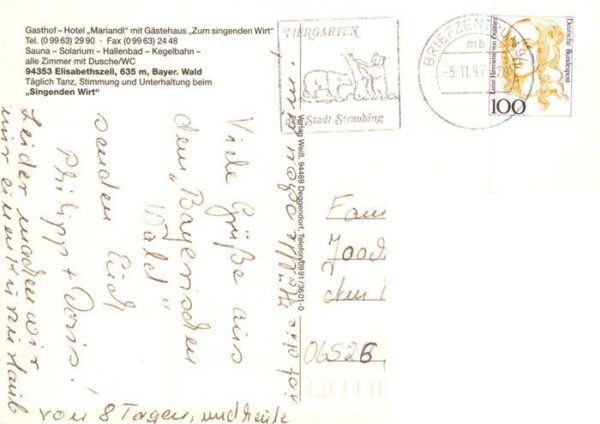 Gasthof – Hotel „Mariandl" mit Gästehaus „Zum singenden Wirt"
Tel. (0 99 63) 29 90 · Fax (0 99 63) 24 48
Sauna – Solarium – Hallenbad – Kegelbahn –
alle Zimmer mit Dusche/WC
94353 Elisabethszell, 635 m, Bayer. Wald
Täglich Tanz, Stimmung und Unterhaltung beim
„Singenden Wirt"
TIERGARTEN
der Stadt Straubing
BRIEFZENTRUM 94
mb
-5.11.97
Deutsche Bundespost
Luise Henriette von Oranien
100
Verlag Weiß, 94469 Deggendorf, Telefon 0991/3601-0
Viele Grüße aus
dem „Bayerischen
Wald"
senden Euch
Philipp + Doris!
Leider machen wir
nur einen Kurzurlaub
von 8 Tagen, und heute
ist die Hälfte schon
Fam
06526